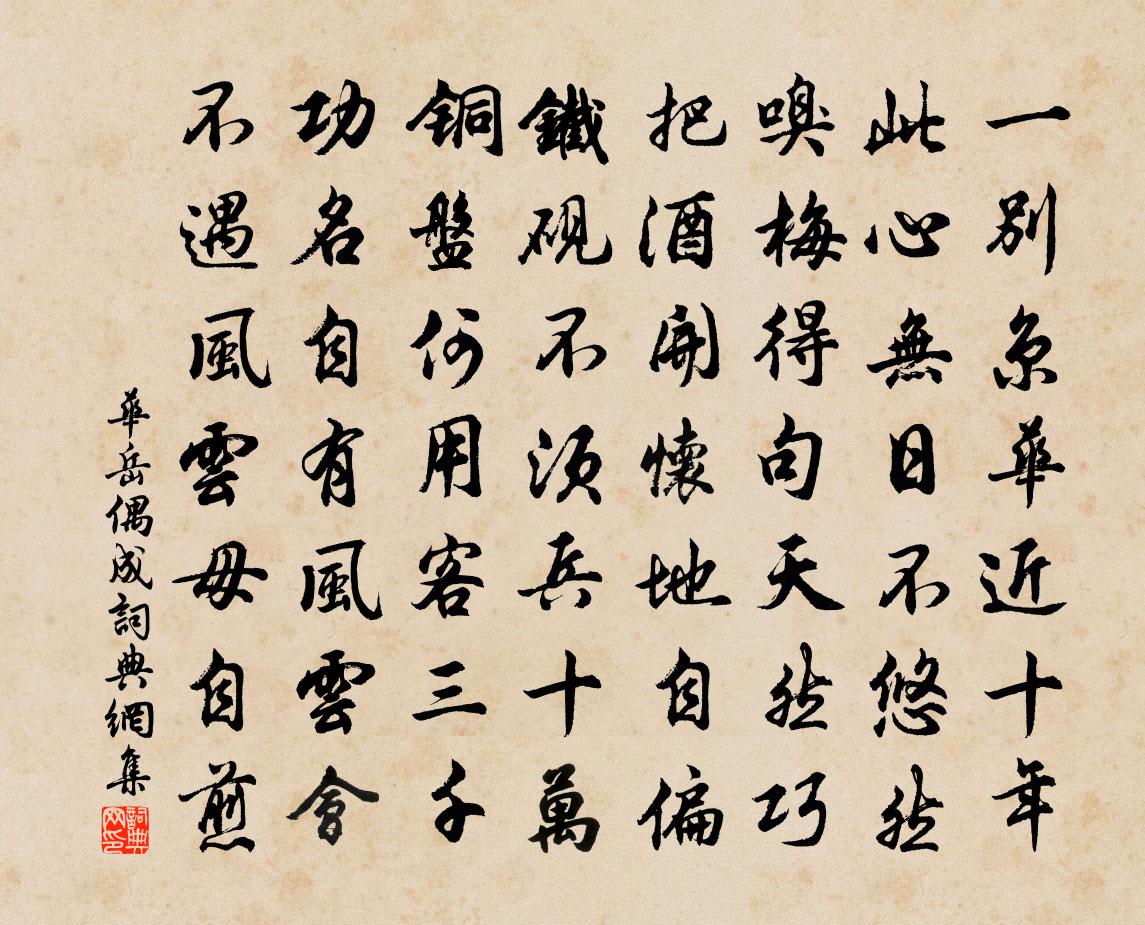 一別京華近十年
此心無日不悠然
嗅梅得句天然巧
把酒開懷地自偏
鐵硯不須兵十萬
銅盤何用客三千
功名自有風雲會
不遇風雲毋自煎
華岳偶成詞典網集
詞典网印